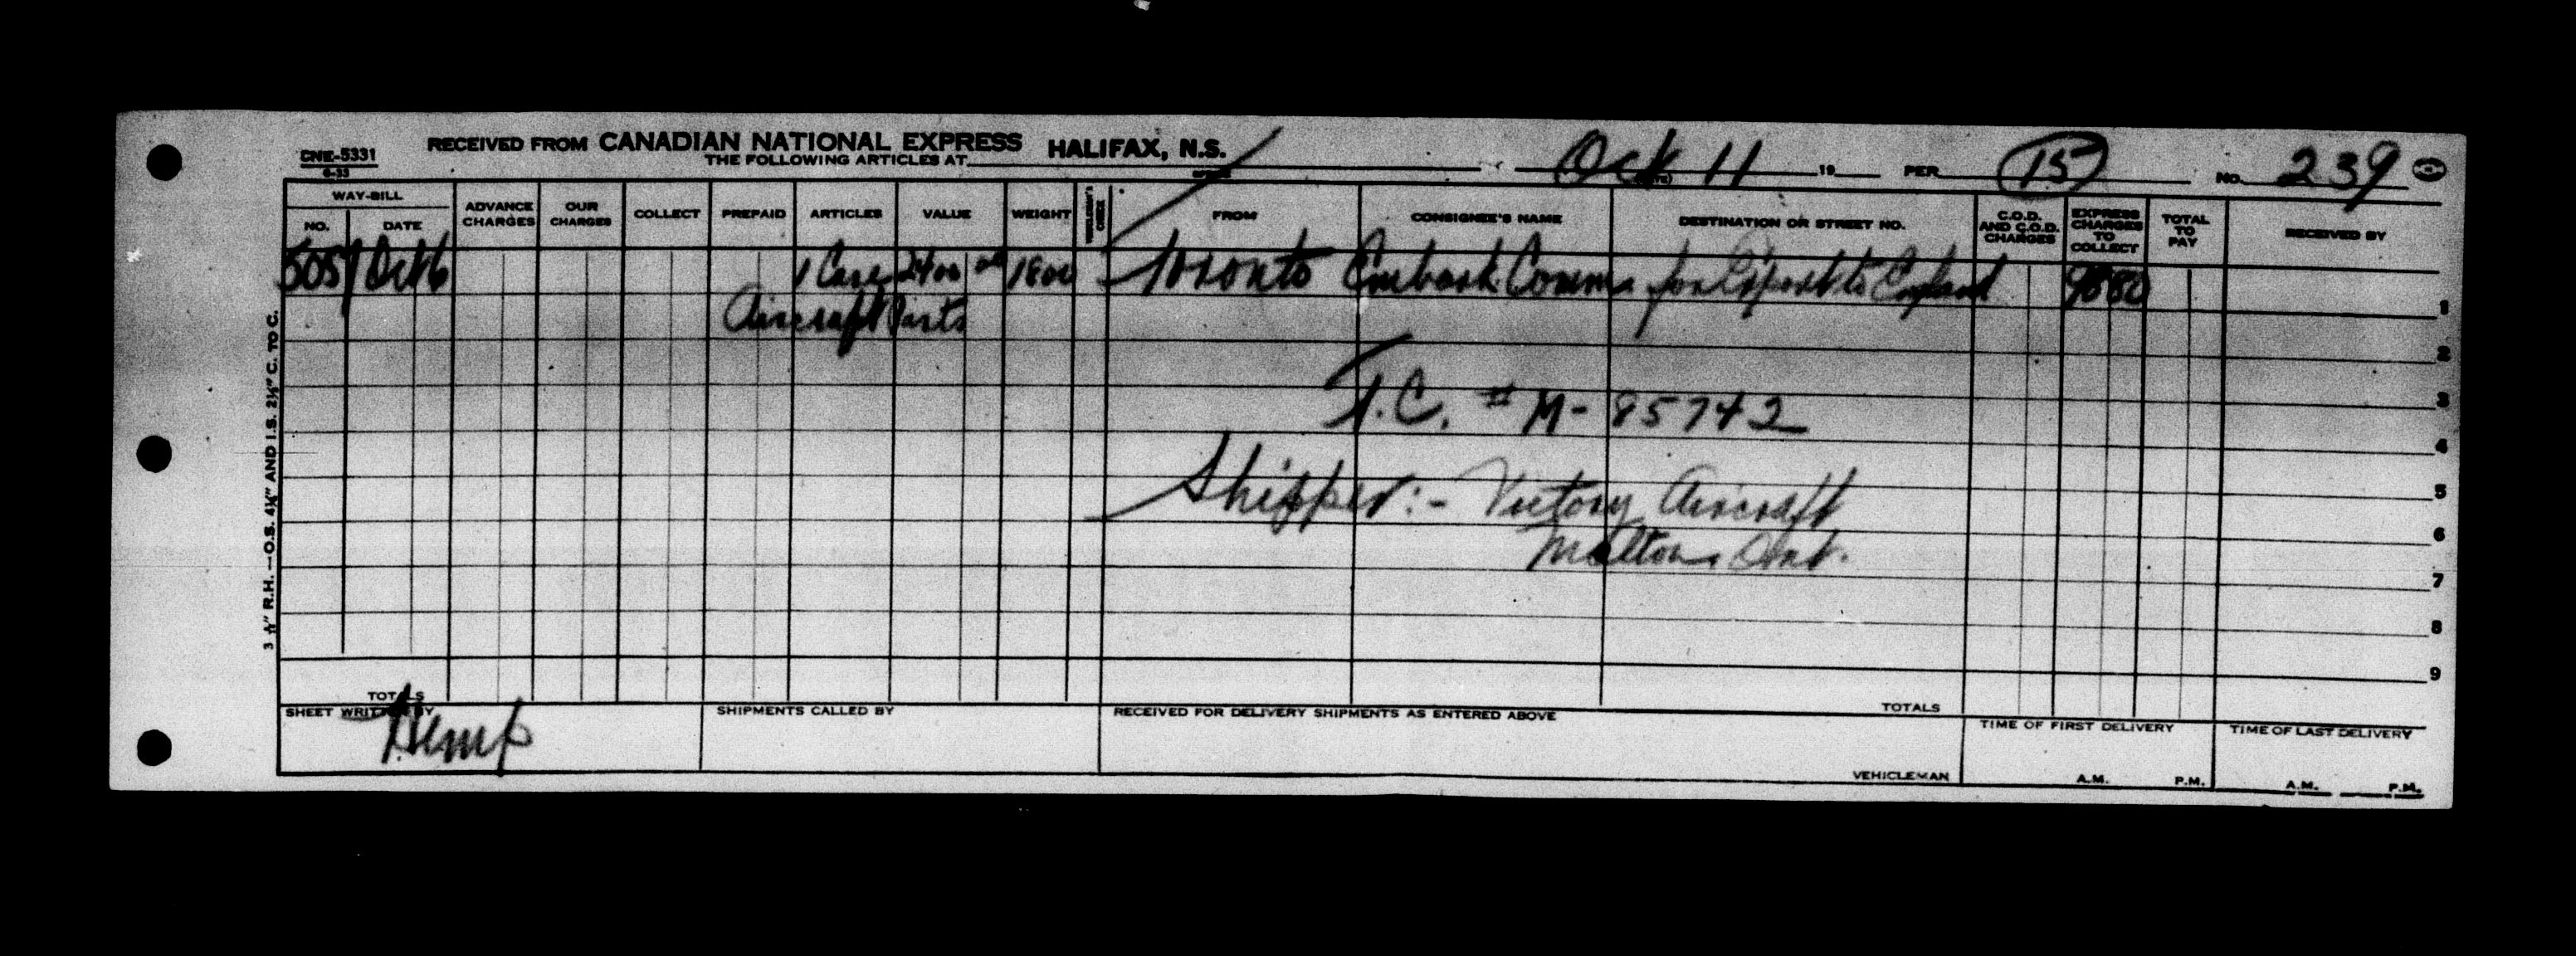 CNE-5331
6-33
RECEIVED FROM CANADIAN NATIONAL EXPRESS
THE FOLLOWING ARTICLES AT HALIFAX, N.S. Oct 11 19 PER 15 NO. 239
OFFICE (DATE)
WAY-BILL
NO. DATE ADVANCE CHARGES OUR CHARGES COLLECT PREPAID ARTICLES VALUE WEIGHT VEHICLEMAN'S CHECK FROM CONSIGNEE'S NAME DESTINATION OR STREET NO. C.O.D. AND C.O.D. CHARGES EXPRESS CHARGES TO COLLECT TOTAL TO PAY RECEIVED BY
5057 Oct 6 1 Case 2400 00 1800 Toronto Embark. Comm. for Export to England 9880 1
Aircraft Parts
2
T.C. # M-85742 3
4
Shipper:- Victory Aircraft 5
Malton, Ont. 6
7
8
9
TOTALS
SHEET WRITTEN BY SHIPMENTS CALLED BY RECEIVED FOR DELIVERY SHIPMENTS AS ENTERED ABOVE TOTALS TIME OF FIRST DELIVERY TIME OF LAST DELIVERY
VEHICLEMAN A.M. P.M. A.M. P.M.
R.H. —O.S. 4¼" AND I.S. 2½" C. TO C.